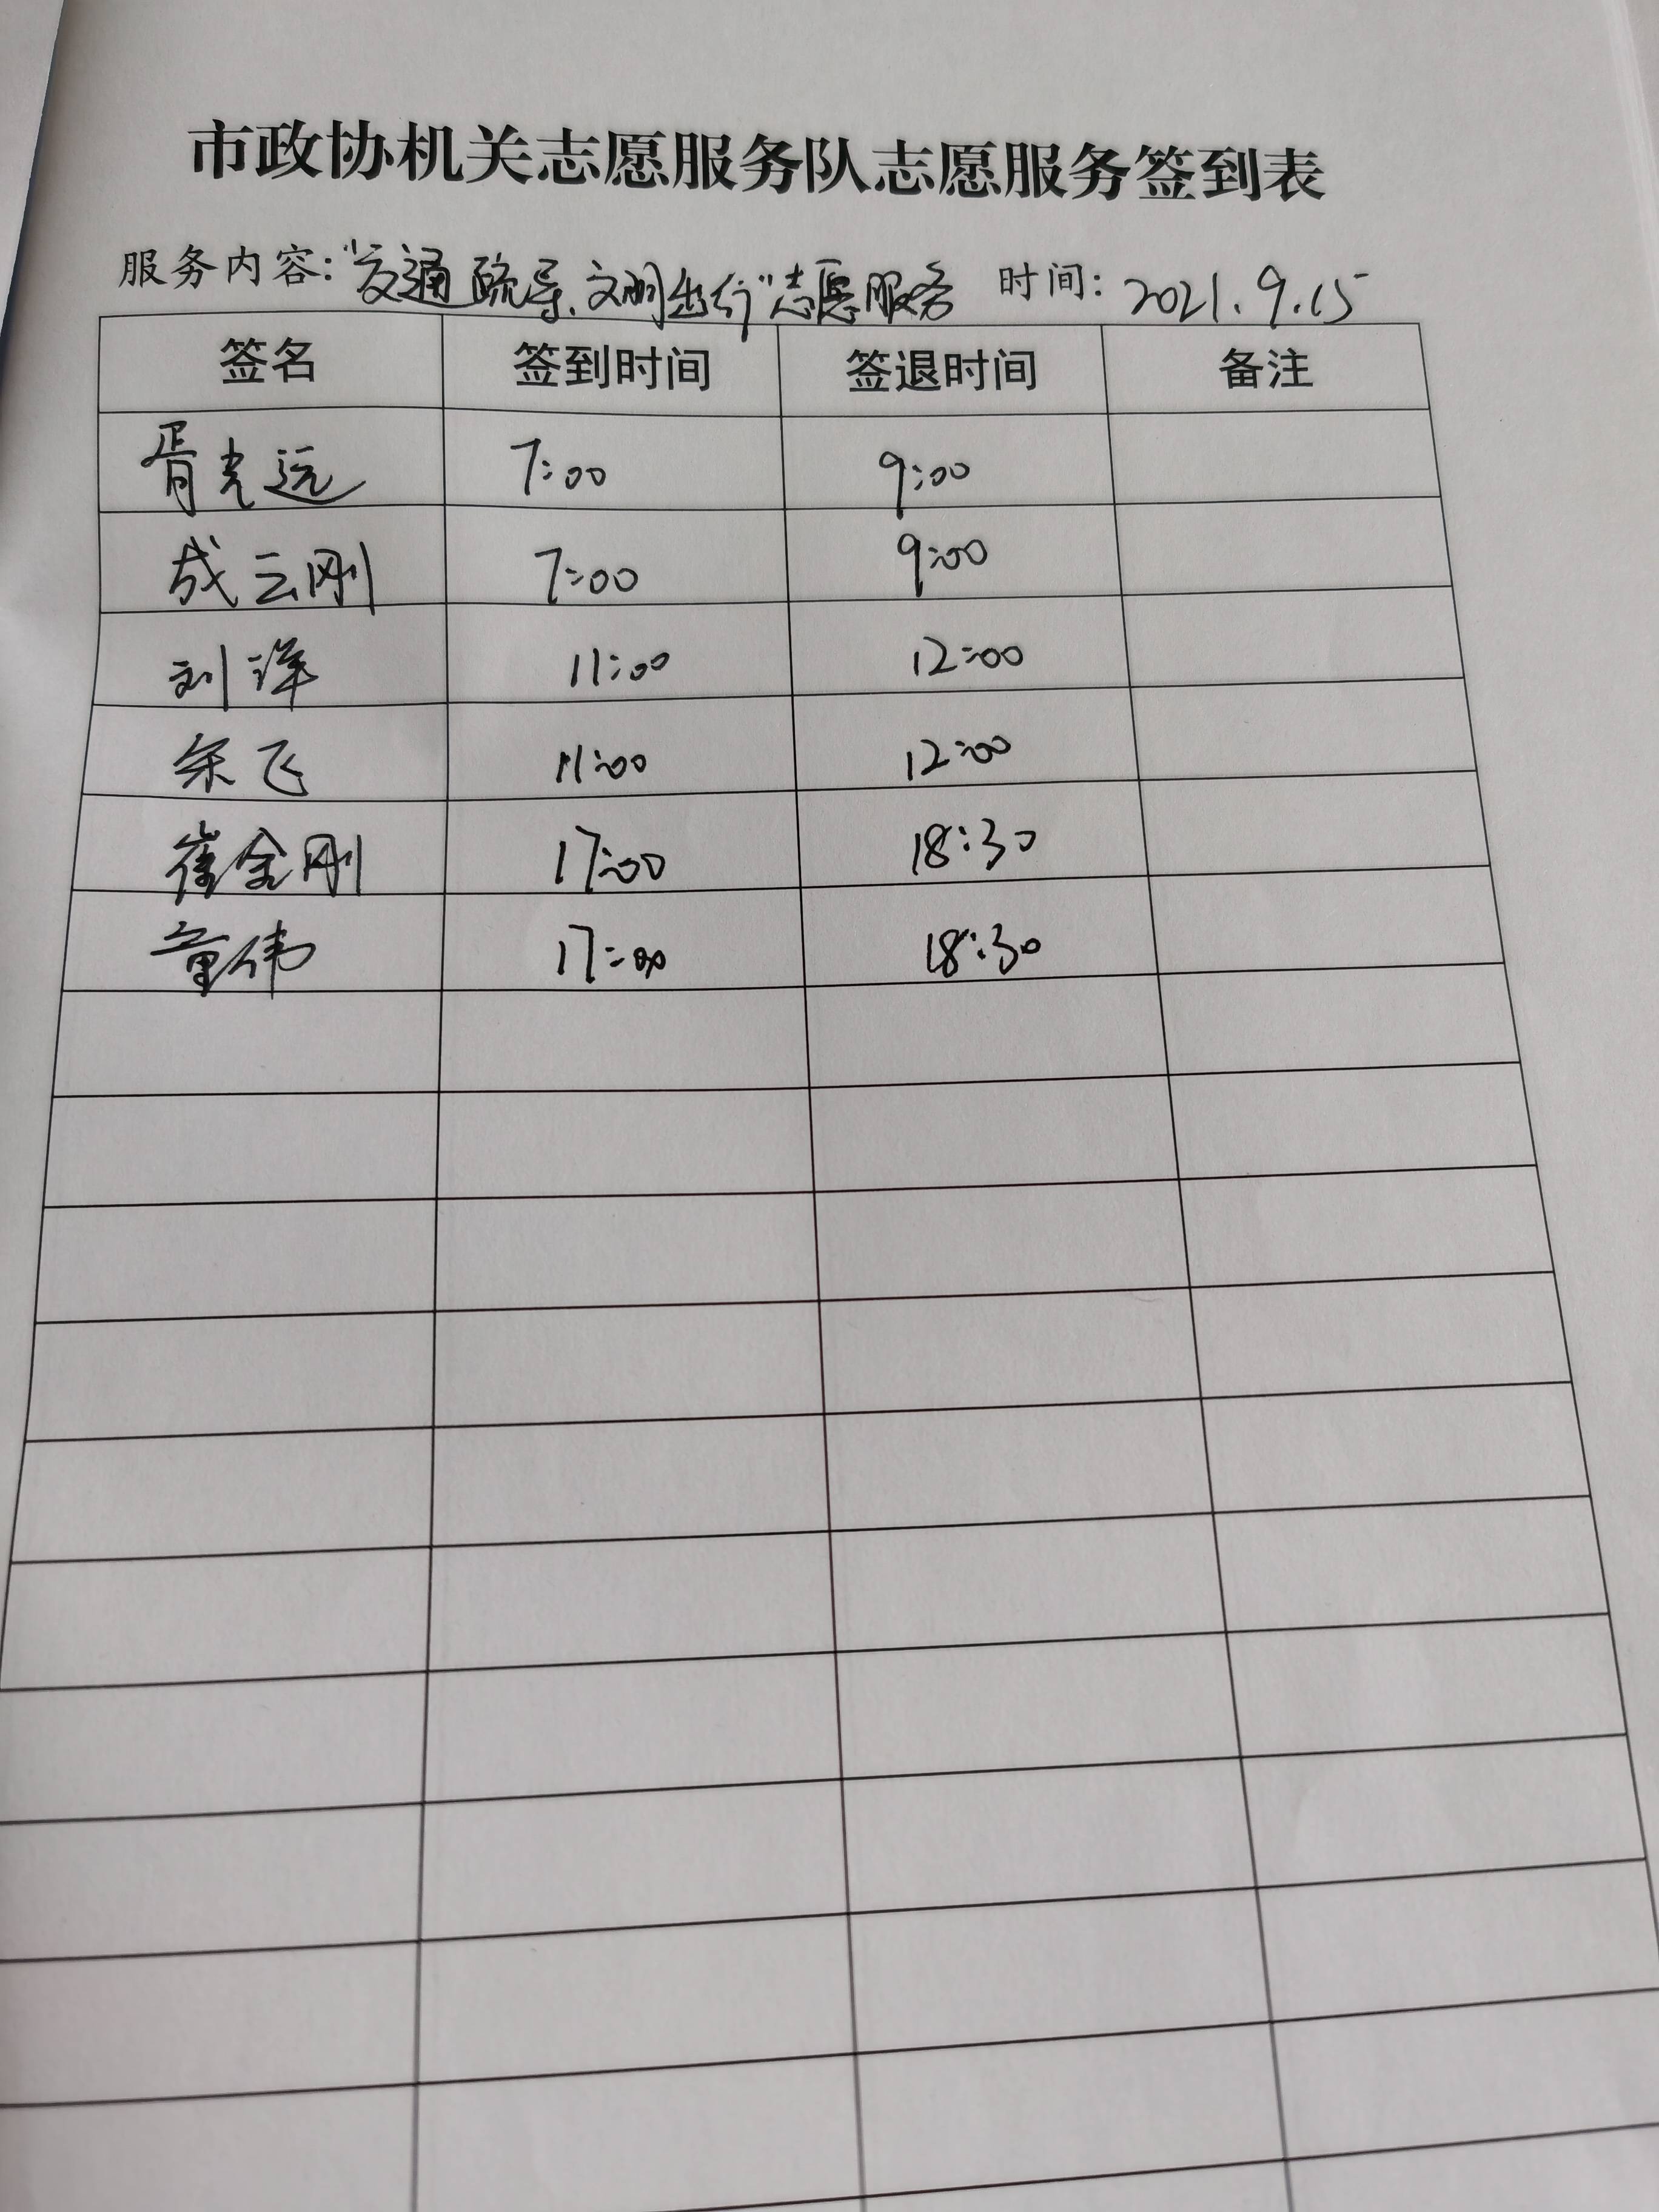 市政协机关志愿服务队志愿服务签到表
服务内容:“交通疏导、文明出行”志愿服务 时间: 2021.9.15
签名 签到时间 签退时间 备注
胥光远 7:00 9:00
成云刚 7:00 9:00
刘洋 11:00 12:00
余飞 11:00 12:00
崔金刚 17:00 18:30
童伟 17:00 18:30